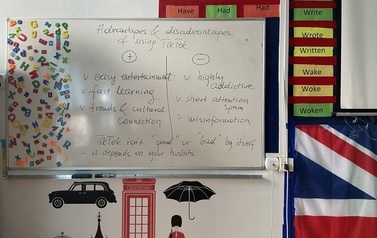 Have Had Had
Advantages & disadvantages
of "using TikTok"
+ −
v easy entertainment
v fast learning
v trends & cultural
connection
v highly
addictive
v short attention
span
v misinformation
TikTok isn't "good" or "bad" by itself
– it depends on your habits
Write
Wrote
Written
Wake
Woke
Woken